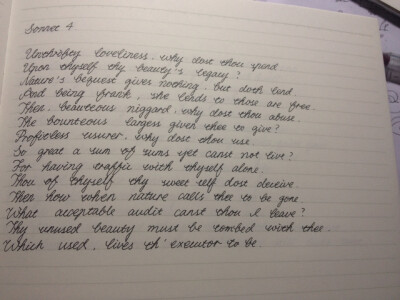 Sonnet 4
Unthrifty loveliness, why dost thou spend
Upon thyself thy beauty's legacy?
Nature's bequest gives nothing, but doth lend,
And being frank, she lends to those are free.
Then, beauteous niggard, why dost thou abuse
The bounteous largess given thee to give?
Profitless usurer, why dost thou use
So great a sum of sums yet canst not live?
For having traffic with thyself alone,
Thou of thyself thy sweet self dost deceive.
Then how when nature calls thee to be gone
What acceptable audit canst thou leave?
Thy unused beauty must be tombed with thee,
Which used, lives th' executor to be.